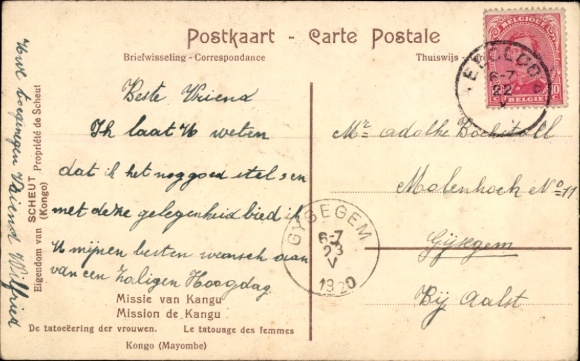 Postkaart - Carte Postale
Briefwisseling - Correspondance
Thuiswijs -
BELGIQUE
10
BELGIË
EECLOO
6-7
22
V
Beste Vriend
Ik laat U weten
dat ik het nog goed stel, en
met deze gelegenheid bied ik
U mijnen besten wensch aan
van een Zaligen Hoogdag
Uwe toegenegen Vriend Wilfried
Eigendom van SCHEUT Propriété de Scheut
(Kongo)
Mr. Adolhe
Molenhoek No 11
Gijzegem
Bij Aalst
GYSEGEM
6-7
23
V
1920
Missie van Kangu
Mission de Kangu
De tatoeëering der vrouwen. Le tatouage des femmes
Kongo (Mayombe)